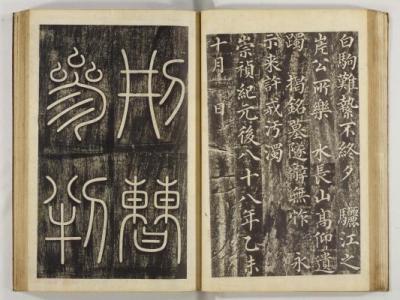 白駒難縶不終夕 驪江之
岸公所樂 水長山高仰遺
躅 揭銘墓隧辭無怍 永
示來許戒汚濁
崇禎紀元後八十八年乙未
十月 日
刑曹
參判